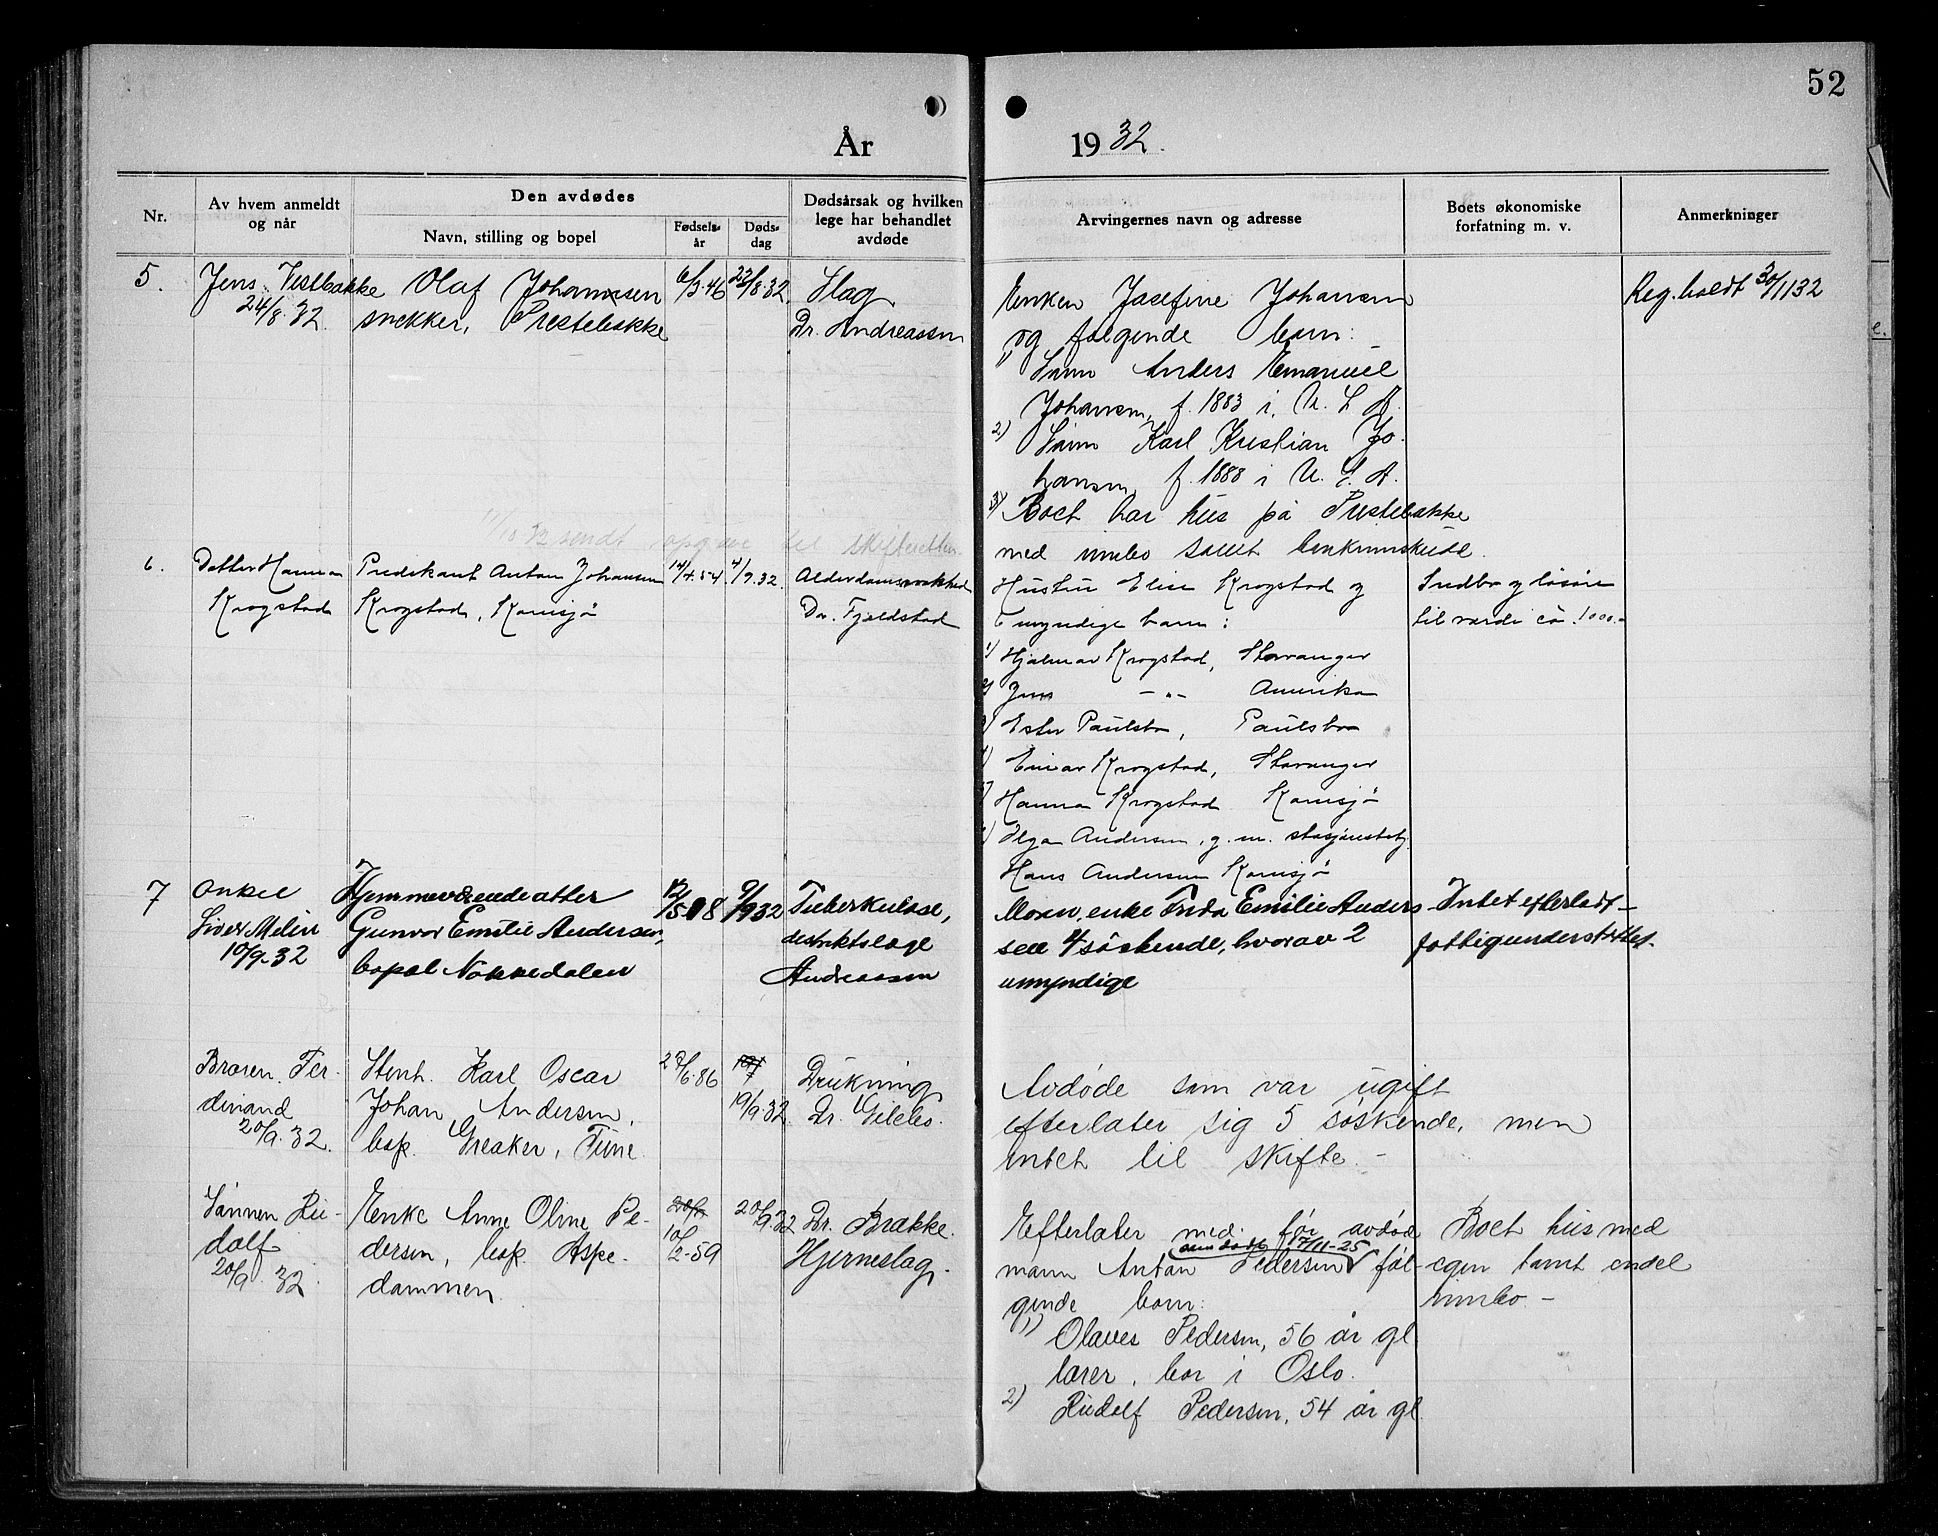 52
År 1932.
Nr.
Av hvem anmeldt
og når
Den avdødes
Navn, stilling og bopel
Fødsels-
år
Døds-
dag
Dødsårsak og hvilken
lege har behandlet
avdøde
Arvingernes navn og adresse
Boets økonomiske
forfatning m. v.
Anmerkninger
5.
Jens Vestbakke
24/8.32.
Olaf Johannesen
snekker, Prestebakke
6/3.46
22/8.32.
Slag.
Dr. Andreassen
Enken Josefine Johansen
og følgende barn:
1) Sønn Anders Emanuel
Johansen, f. 1883 i U. S. A.
2) Sønn Karl Kristian Jo-
hansen, f. 1888 i U. S. A.
3) Boet har hus på Prestebakke
med innbo samt
Reg. holdt 30/11 32
11/10 32 sendt opgave til skifteretten
6.
Datter Hanna
Krogstad
Predikant Anton Johansen
Krogstad, Kornsjø
14/4.54
4/9.32.
Alderdomssvakhed
Dr. Fjeldstad
Hustru Elise Krogstad og
6 myndige barn:
1) Hjalmar Krogstad, Stavanger
2) Jens -"- Amerika
3) Ester Paulsbo, Paulsbo
4) Einar Krogstad, Stavanger
5) Hanna Krogstad Kornsjø
6) Olga Andersen, g. m. stasjonsbetj.
Hans Andersen Kornsjø
Indbo og løsøre
til værdi ca. 1000.-
7
Onkel
Sivert Melin
10/9-32
Hjemmeværende datter
Gunvor Emilie Andersen,
bopel Nokkedalen
12/5 08
9/9 32
Tuberkulose,
distriktslege
Andreassen
Moren, enke Frida Emilie Anders-
sen 4 søskende, hvorav 2
umyndige
Intet efterladt -
fattigunderstøttet.
Broren Fer-
dinand
20/9.32.
Stenh. Karl Oscar
Johan Andersen,
bop. Greaker, Tune
27/6.86
19/9.32.
Drukning
Dr. Gilebo.
Avdøde som var ugift
efterlater sig 5 søskende, men
intet til skifte. -
Sønnen Ru-
dolf
20/9. 32.
Enke Anne Oline Pe-
dersen, bop. Aspe-
dammen.
10/2-59
20/9.32
Dr. Brække.
Hjerneslag.
Efterlater med før avdød
som døde 17/11-25
mann Anton Pedersen føl-
gende barn:
1) Olaves Pedersen, 56 år gl
lærer, bor i Oslo.
2) Rudolf Pedersen, 54 år gl
Boet hus med
egen tomt endel
innbo -